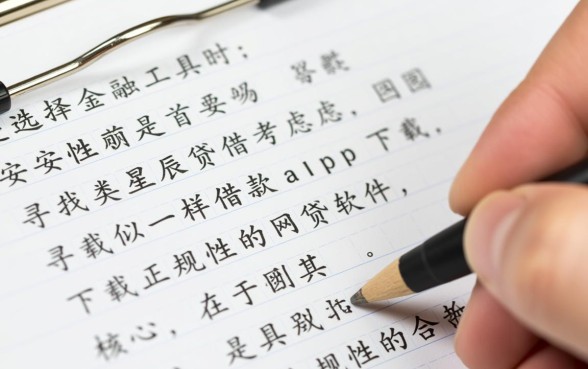 选择金融工具时；
安安性前是首要
寻找类星辰贷借考虑虑，
寻载似一样借款alpp下载，
下载正规性的网贷软件，
核心，在于其。
是具
规性的合